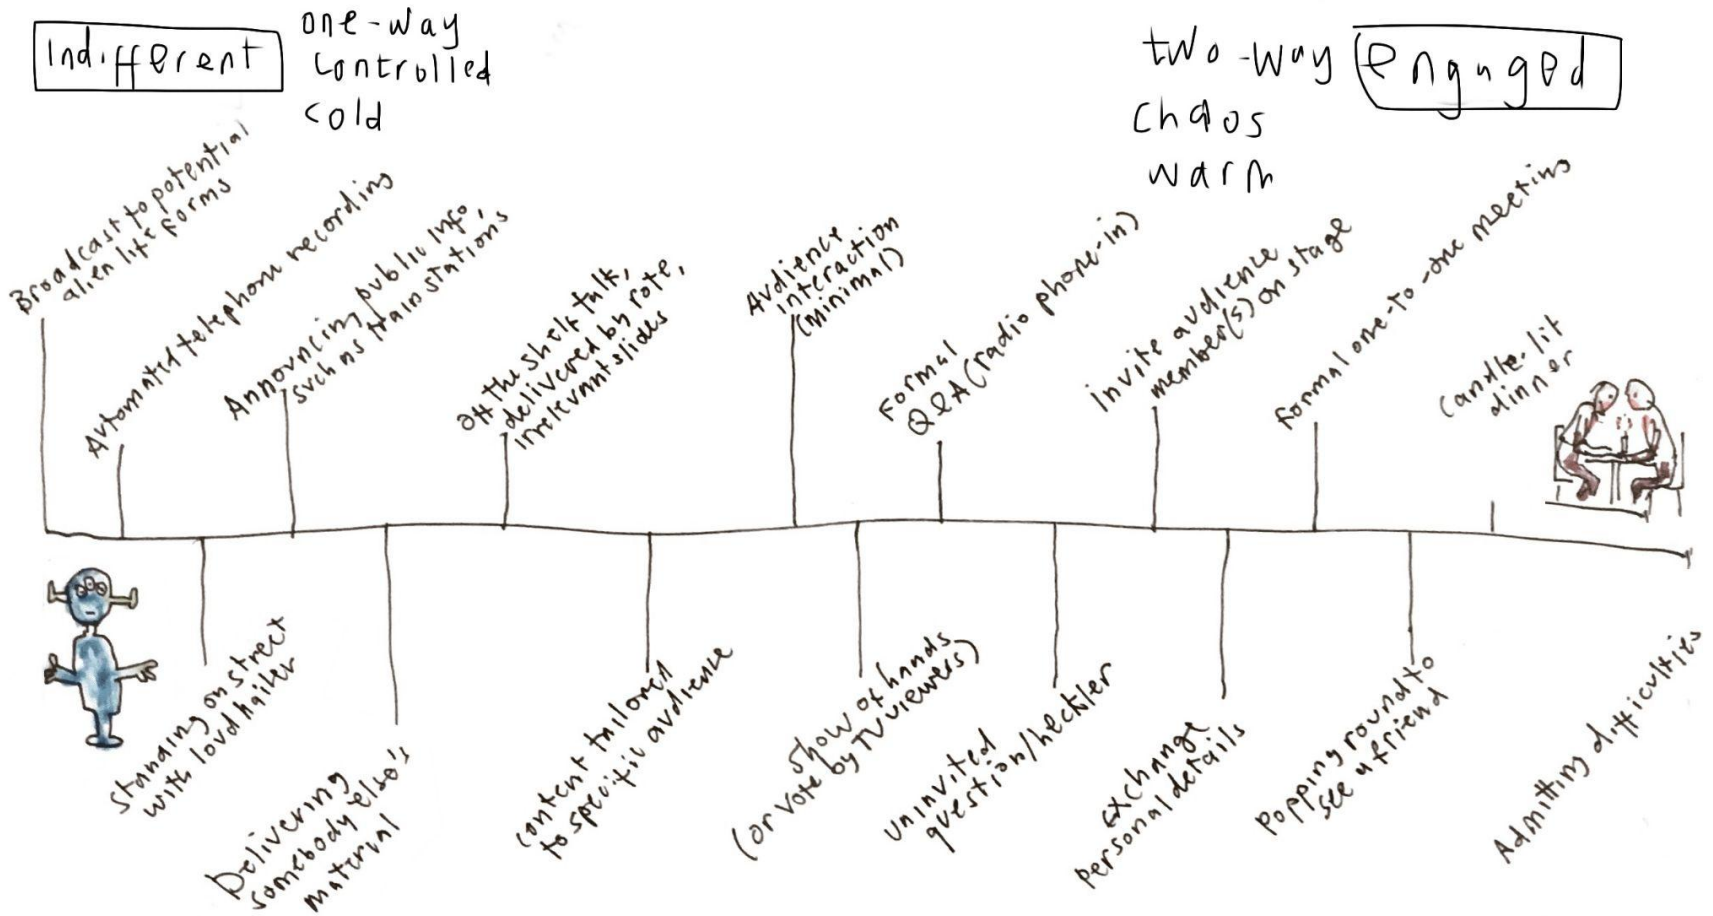 Indifferent
one-way
controlled
cold
two-way
engaged
chaos
warm
Broadcast to potential
alien life forms
Automated telephone recording
Announcing public info,
such as train stations
Off the shelf talk,
delivered by rote,
irrelevant slides
Audience
interaction
(minimal)
Formal
Q&A (radio phone-in)
Invite audience
member(s) on stage
Formal one-to-one meeting
Candle-lit
dinner
Standing on street
with loudhailer
Delivering
somebody else's
material
Content tailored
to specific audience
Show of hands
(or vote by TV viewers)
Uninvited
question/heckler
Exchange
personal details
Popping round to
see a friend
Admitting difficulties